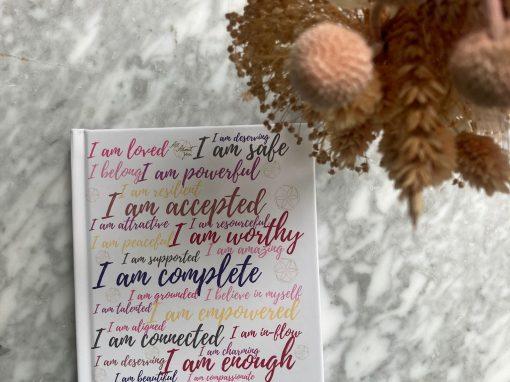 I am deserving
I am loved
All About you
I am safe
I belong
I am powerful
I am resilient
I am accepted
I am attractive
I am resourceful
I am peaceful
I am worthy
I am amazing
I am supported
I am complete
I am grounded
I believe in myself
I am talented
I am empowered
I am aligned
I am connected
I am in-flow
I am charming
I am deserving
I am enough
I am beautiful
I am compassionate